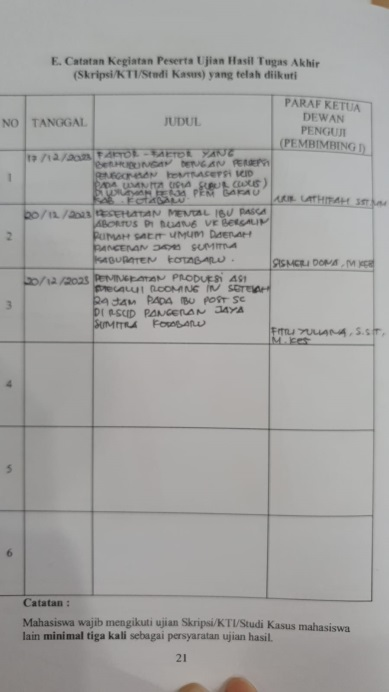 E. Catatan Kegiatan Peserta Ujian Hasil Tugas Akhir
(Skripsi/KTI/Studi Kasus) yang telah diikuti
NO
TANGGAL
JUDUL
PARAF KETUA
DEWAN
PENGUJI
(PEMBIMBING I)
1
17/12/2023
FAKTOR-FAKTOR YANG
BERHUBUNGAN DENGAN PERSEPSI
PENGGUNAAN KONTRASEPSI IUD
PADA WANITA USIA SUBUR (WUS)
DI WILAYAH KERJA PKM BAKAU
KAB. KOTABARU
2
20/12/2023
KESEHATAN MENTAL IBU PASCA
ABORTUS DI RUANG VK BERSALIN
RUMAH SAKIT UMUM DAERAH
PANGERAN JAYA SUMITRA
KABUPATEN KOTABARU.
M.KEB
3
20/12/2023
PENINGKATAN PRODUKSI ASI
MELALUI ROOMING IN SETELAH
24 JAM PADA IBU POST SC
DI RSUD PANGERAN JAYA
SUMITRA KOTABARU
FITRI YULIANA, S.S.T,
M.Kes
4
5
6
Catatan :
Mahasiswa wajib mengikuti ujian Skripsi/KTI/Studi Kasus mahasiswa
lain minimal tiga kali sebagai persyaratan ujian hasil.
21